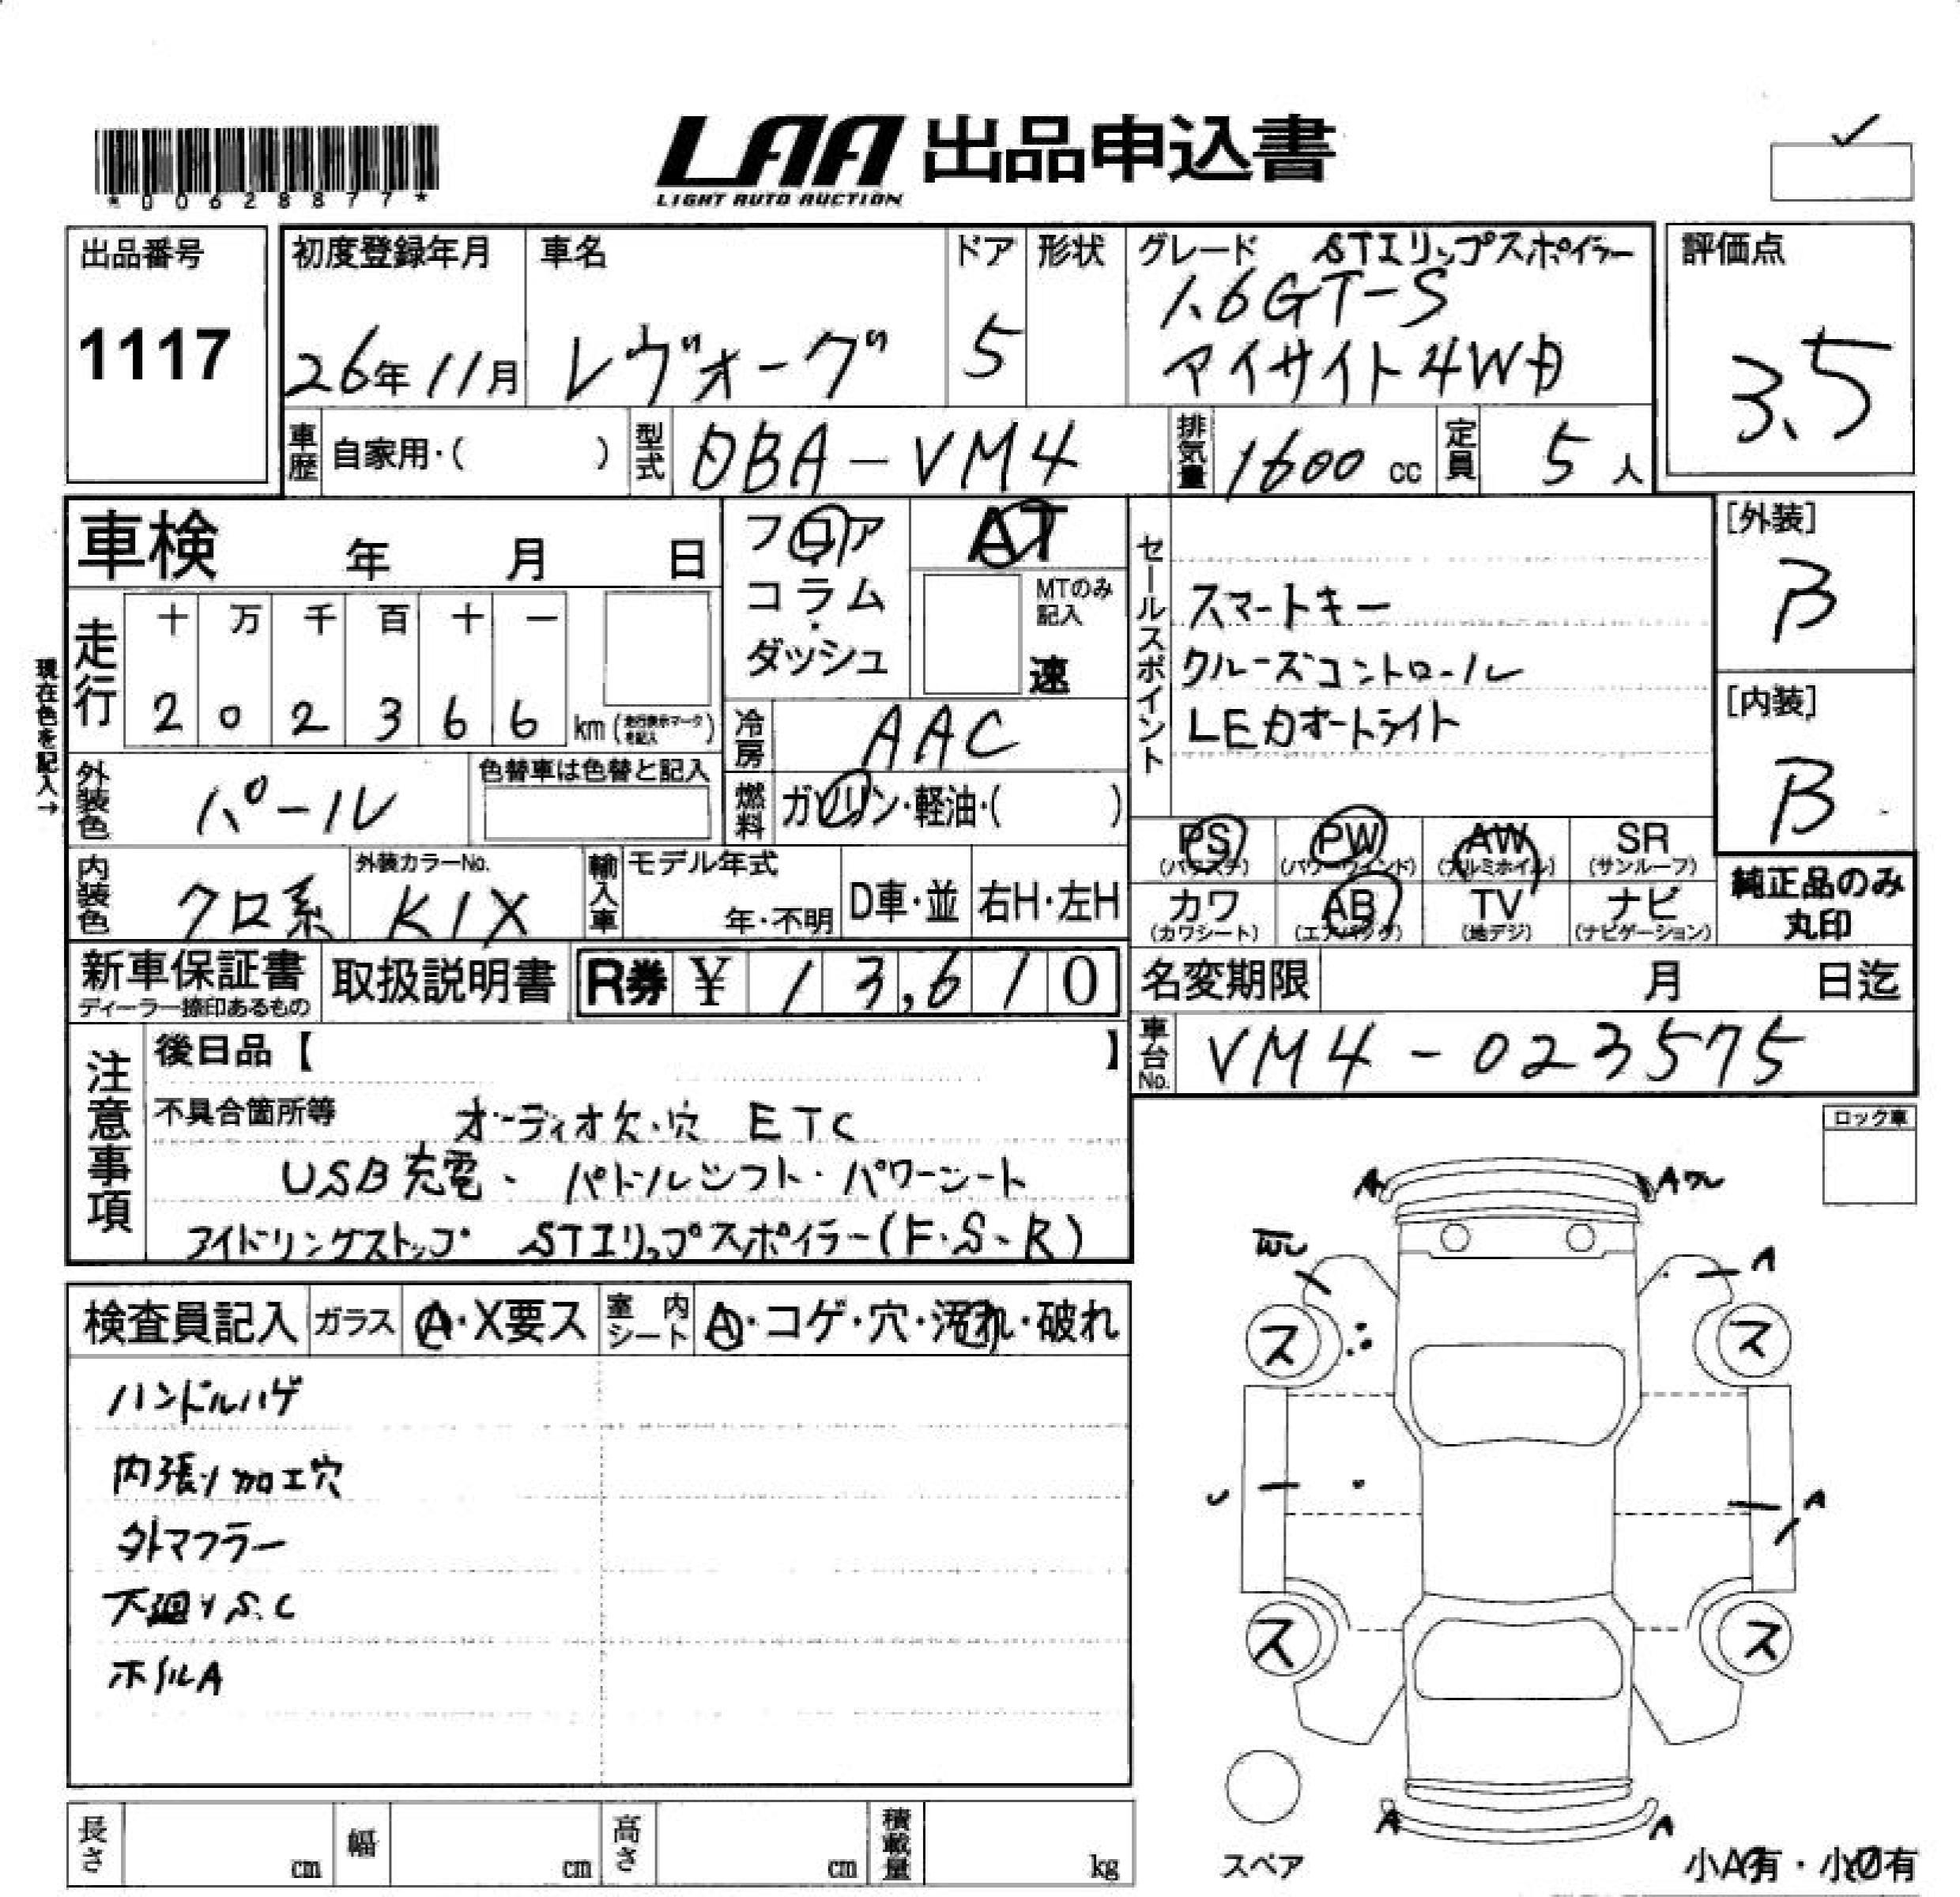 *00628877*
LAA 出品申込書
LIGHT AUTO AUCTION
出品番号
1117
初度登録年月
26年11月
車名
レヴォーグ
ドア
5
形状
グレード STIリップスポイラー
1.6GT-S
アイサイト4WD
評価点
3.5
車歴 自家用・( )
型式 DBA-VM4
排気量 1600 cc
定員 5人
車検 年 月 日
フロア
コラム
・
ダッシュ
AT
MTのみ
記入
速
現在色を記入→
走行
十 万 千 百 十 一
2 0 2 3 6 6 km (走行表示マークを記入)
冷房 AAC
外装色 パール
色替車は色替と記入
燃料 ガソリン・軽油・( )
内装色 クロ系
外装カラーNo.
K1X
輸入車
モデル年式
年・不明
D車・並
右H・左H
セールスポイント
スマートキー
クルーズコントロール
LEDオートライト
[外装]
B
[内装]
B
PS (パワステ)
PW (パワーウィンド)
AW (アルミホイル)
SR (サンルーフ)
カワ (カワシート)
AB (エアバック)
TV (地デジ)
ナビ (ナビゲーション)
純正品のみ
丸印
新車保証書
ディーラー捺印あるもの
取扱説明書
R券 ¥ 13,610
名変期限 月 日迄
車台No. VM4-023575
注意事項
後日品【 】
不具合箇所等 オーディオ欠・穴 ETC
USB充電、パドルシフト・パワーシート
アイドリングストップ STIリップスポイラー(F・S・R)
ロック車
検査員記入
ガラス A・X要ス
室内シート A・コゲ・穴・汚れ・破れ
ハンドルハゲ
内張り加工穴
外マフラー
下廻りS.C
ホイルA
A
A
A
ス
ス
A
ス
ス
A
A
スペア
小A有・小U有
長さ cm
幅 cm
高さ cm
積載量 kg